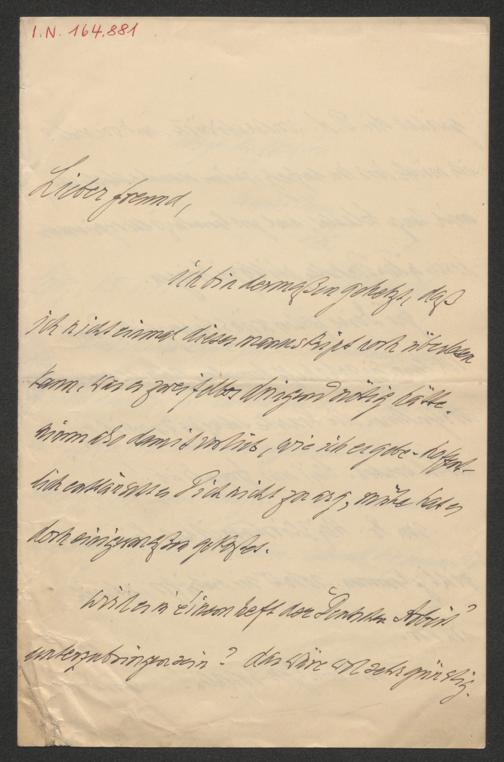 I.N. 164.881
Lieber Freund,
ich bin dermaßen gehetzt, daß
ich nicht einmal dieses Manuskript noch überlesen
kann, was es zweifellos dringend nötig hätte.
Nimm also damit vorlieb, wie ich es gebe. Hoffent-
lich enttäuscht es Dich nicht zu arg, Mühe hat es
doch einigermaßen gekostet.
Wird es in einem Heft der "Deutschen Arbeit"
unterzubringen sein? Das wäre wol sehr günstig.